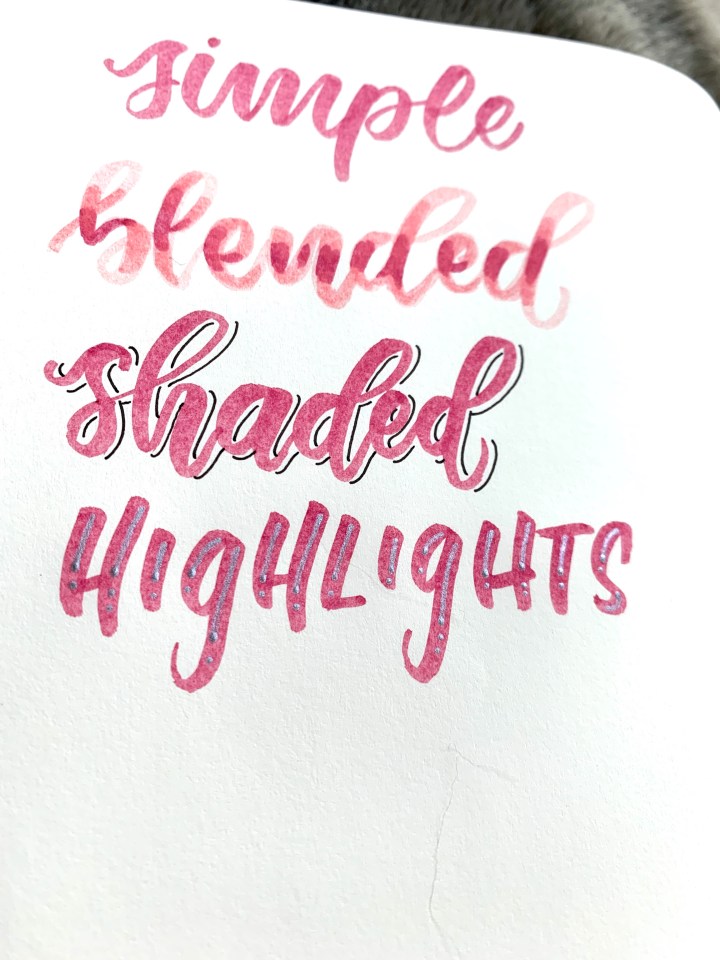 simple
blended
shaded
HIgHLIgHTS